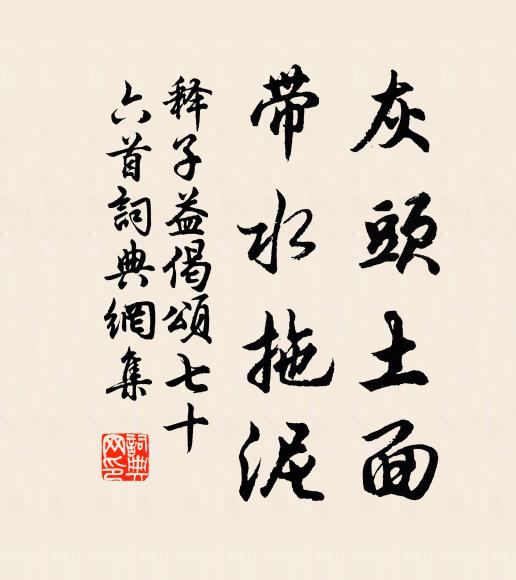 灰頭土面
带水拖泥
释子益偈頌七十
六首詞典網集
詞典
网印